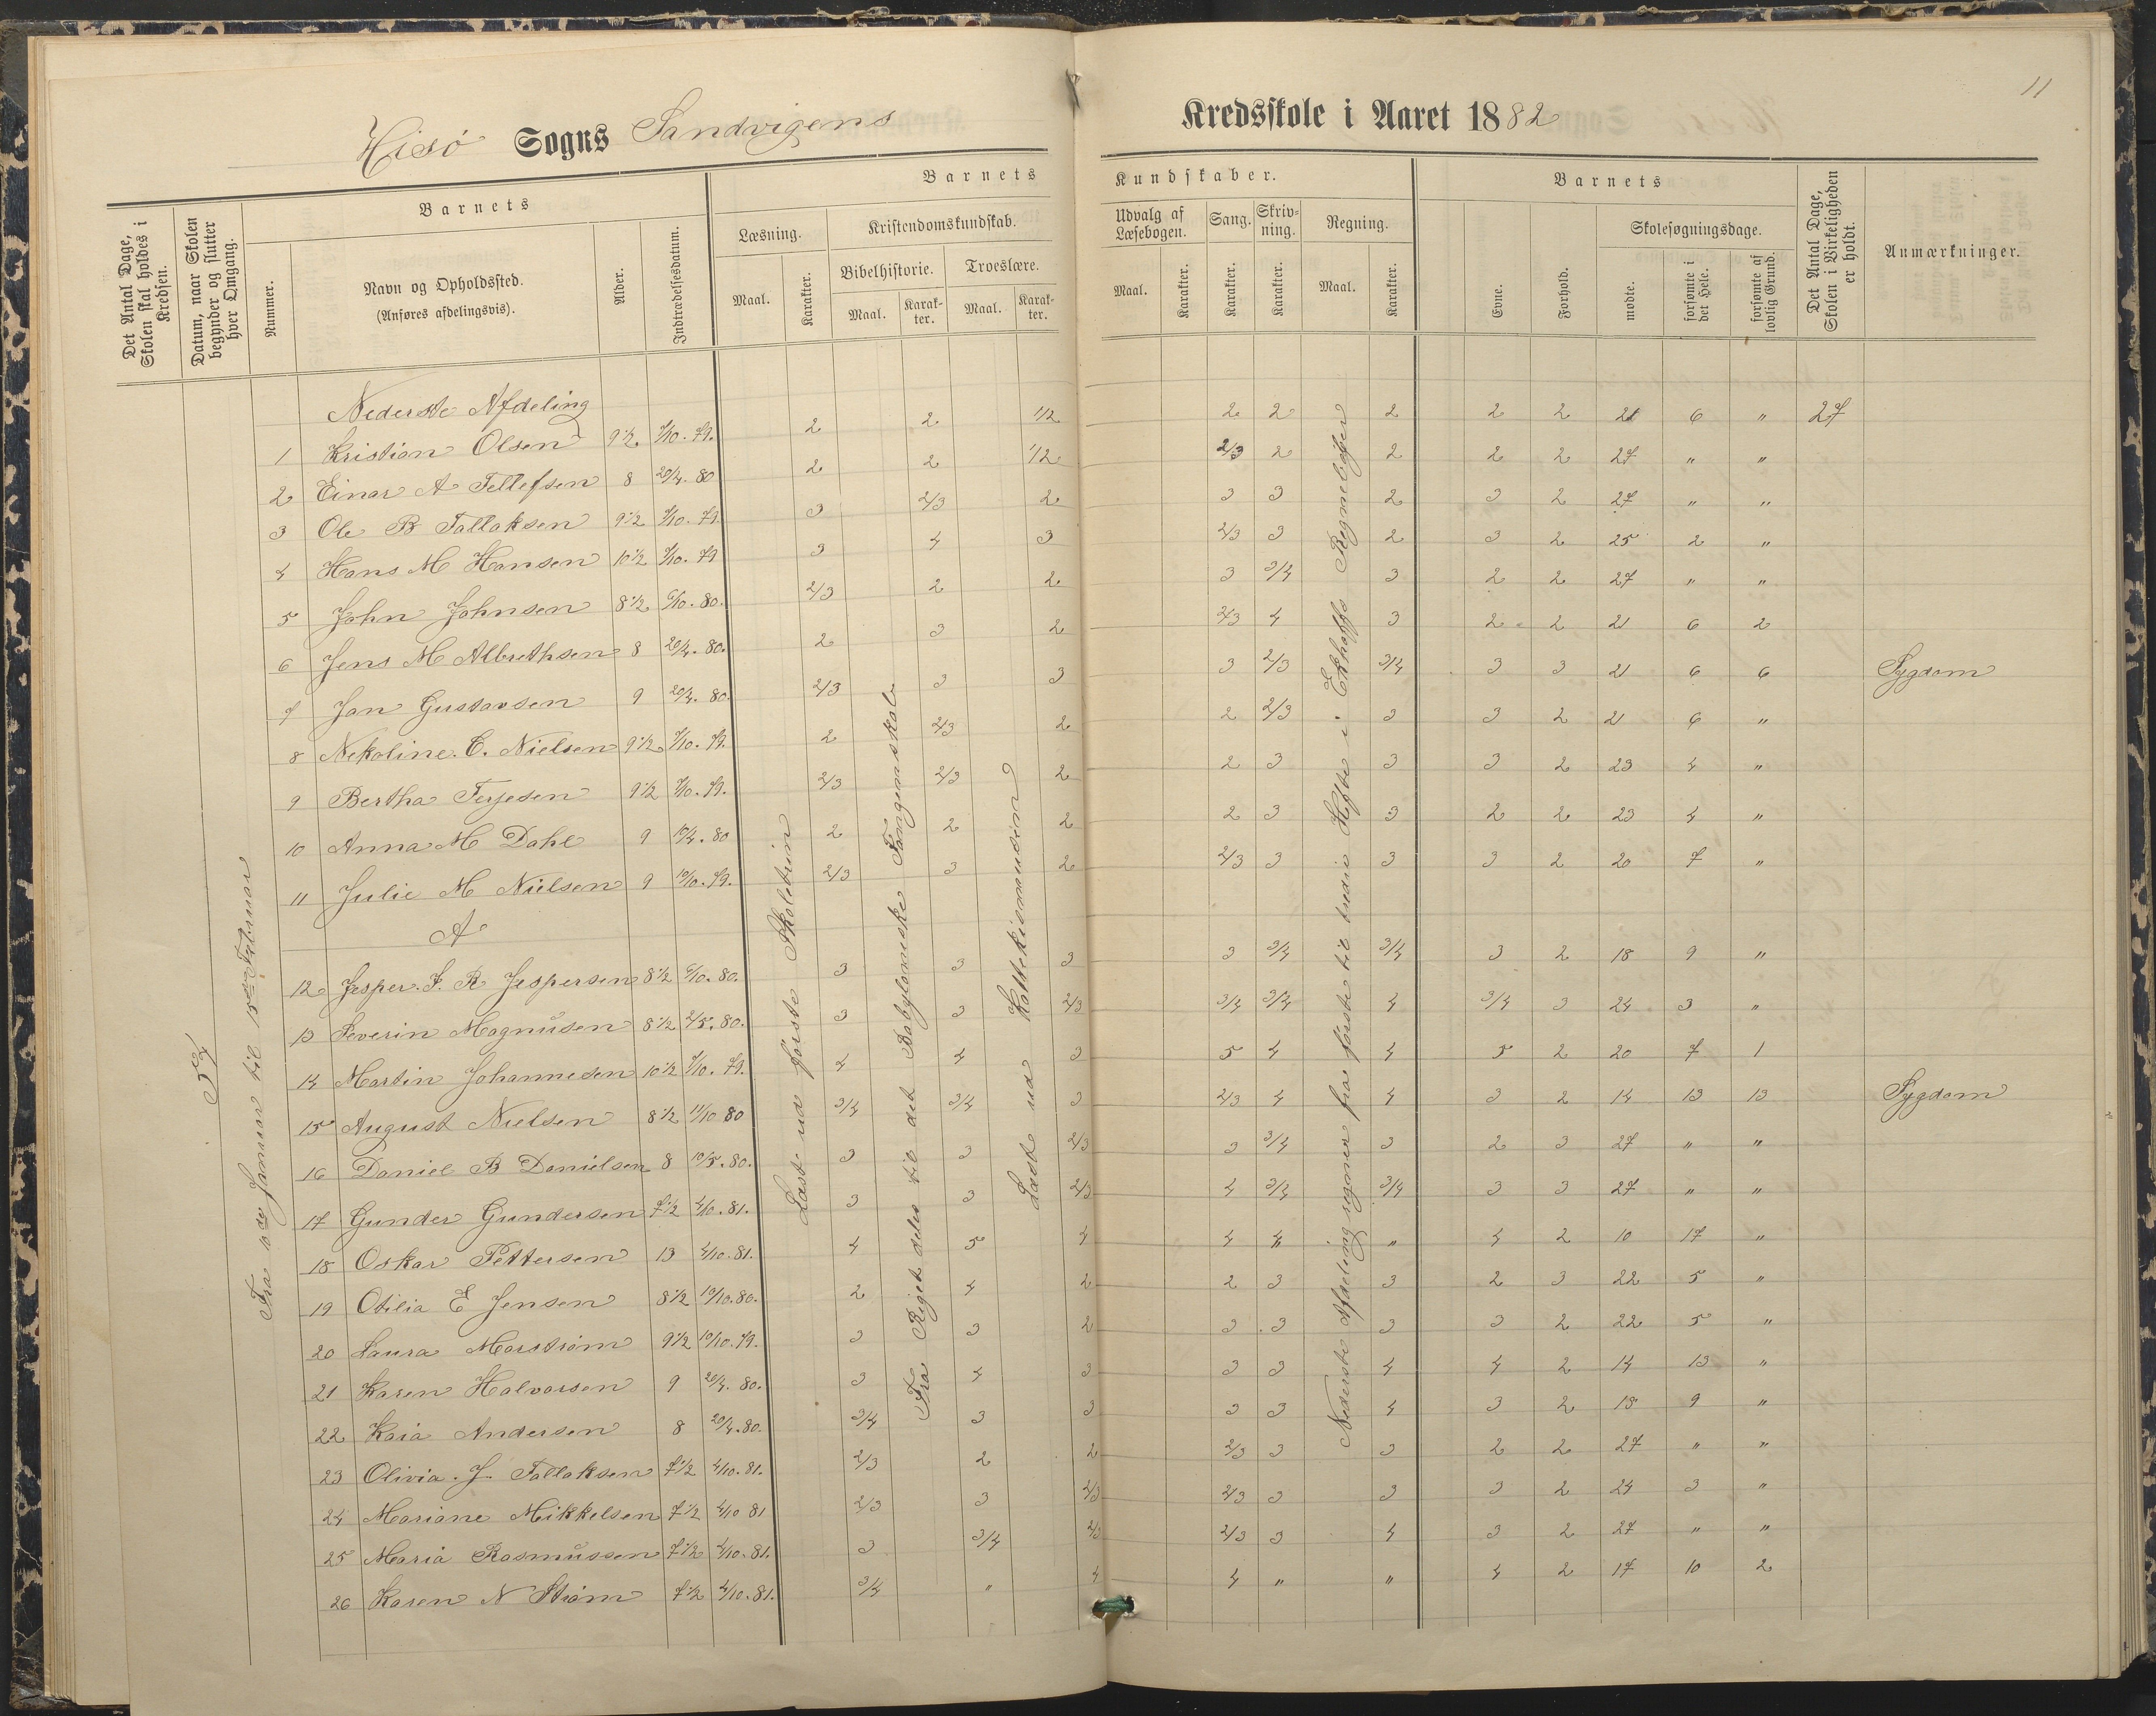 11
Hisø Sogns Sandvigens Kredsskole i Aaret 1882
Det Antal Dage, Skolen skal holdes i Kredsen.
Datum, naar Skolen begynder og slutter hver Omgang.
Barnets
Nummer.
Navn og Opholdssted.
(Anføres afdelingsvis).
Alder.
Indtrædelsesdatum.
Barnets Kundskaber.
Læsning.
Maal.
Karakter.
Kristendomskundskab.
Bibelhistorie.
Maal.
Karakter.
Troeslære.
Maal.
Karakter.
Udvalg af Læsebogen.
Maal.
Karakter.
Sang.
Karakter.
Skrivning.
Karakter.
Regning.
Maal.
Karakter.
Barnets
Evne.
Forhold.
Skolesøgningsdage.
mødte.
forsømte i det Hele.
forsømte af lovlig Grund.
Det Antal Dage, Skolen i Virkeligheden er holdt.
Anmærkninger.
54
Fra 10de Januar til 15de Februar
Læst ud første Skoletrin
Fra Rigets deling til det Babyloniske Fangenskab
Læst ud Katekismusen
Nederste Afdeling regner fra første til tredie Hefte i Ekhoffs Regnebøger
Nederste Afdeling
1 Kristian Olsen 9 1/2 7/10. 79. 2 2 1/2 2 2 2 2 2 21 6 " 27
2 Einar A Tellefsen 8 20/4. 80 2 2 1/2 2/3 2 2 2 2 27 " "
3 Ole B Tallaksen 9 1/2 7/10. 79. 3 2/3 2 3 3 2 3 2 27 " "
4 Hans M Hansen 10 1/2 7/10. 79 3 4 3 2/3 3 2 3 2 25 2 "
5 John Johnsen 8 1/2 6/10. 80. 2/3 2 2 3 3/4 3 2 2 27 " "
6 Jens M Albrethsen 8 20/4. 80. 2 3 2 2/3 4 3 2 2 21 6 2
7 Jan Gustavsen 9 20/4. 80. 2/3 3 3 3 2/3 3/4 3 3 21 6 6 Sygdom
8 Nekoline. C. Nielsen 9 1/2 7/10. 79. 2 2/3 2 2 2/3 3 3 2 21 6 "
9 Bertha Terjesen 9 1/2 7/10. 79. 2/3 2/3 2 2 3 3 3 2 23 4 "
10 Anna M Dahl 9 10/4. 80 2 2 2 2 3 3 2 2 23 4 "
11 Julie M Nielsen 9 10/10. 79. 2/3 3 2 2/3 3 3 3 2 20 7 "
A
12 Jesper. J. R Jespersen 8 1/2 6/10. 80. 3 3 3 3 3/4 3/4 3 2 18 9 "
13 Severin Magnusen 8 1/2 2/5. 80. 3 3 2/3 3/4 3/4 4 3/4 3 24 3 "
14 Martin Johannesen 10 1/2 7/10. 79. 4 4 3 5 4 4 5 2 20 7 1
15 August Nielsen 8 1/2 11/10 80 3/4 3/4 3 2/3 4 4 3 2 14 13 13 Sygdom
16 Daniel B Danielsen 8 10/5. 80. 3 3 2/3 3 3/4 3 2 3 27 " "
17 Gunder Gundersen 7 1/2 4/10. 81. 3 3 2/3 4 3/4 3/4 3 3 27 " "
18 Oskar Pettersen 13 4/10. 81. 4 5 4 4 4 " 4 2 10 17 "
19 Otilia E Jensen 8 1/2 10/10. 80. 2 4 2 2 3 3 2 3 22 5 "
20 Laura Marstrøm 9 1/2 10/10. 79. 3 3 2 3 3 3 3 2 22 5 "
21 Karen Halvorsen 9 20/4. 80. 3 4 3 3 3 4 4 2 14 13 "
22 Kaia Andersen 8 20/4. 80. 3/4 3 3 3 3 4 3 2 18 9 "
23 Olivia. J. Tallaksen 7 1/2 4/10. 81. 2/3 2 2 2/3 3 3 2 2 27 " "
24 Mariane Mikkelsen 7 1/2 4/10 81 2/3 3 2/3 2/3 3 3 3 2 24 3 "
25 Maria Rasmussen 7 1/2 4/10. 81. 3 3/4 2/3 2/3 3 4 3 2 27 " "
26 Karen N Strøm 7 1/2 4/10. 81. 3/4 " 4 4 " " 4 2 17 10 2